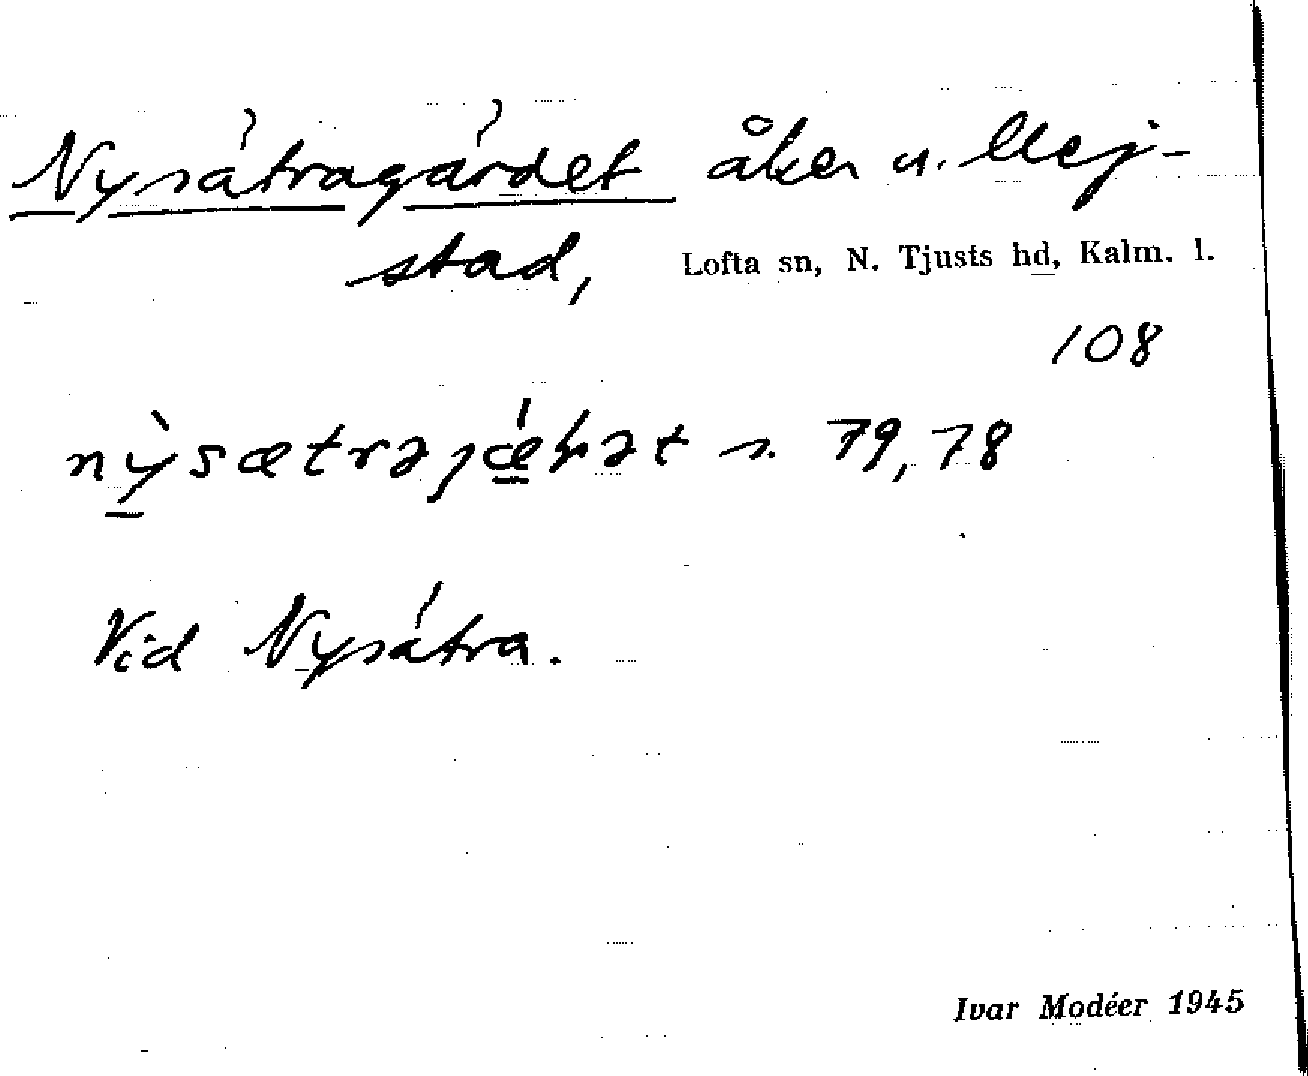 Nysätragärdet åker u. Mej-
stad, Lofta sn, N. Tjusts hd, Kalm. l.
108
nỳsætrəjæ̀ḷət s. 79,78
Vid Nysätra.
Ivar Modéer 1945